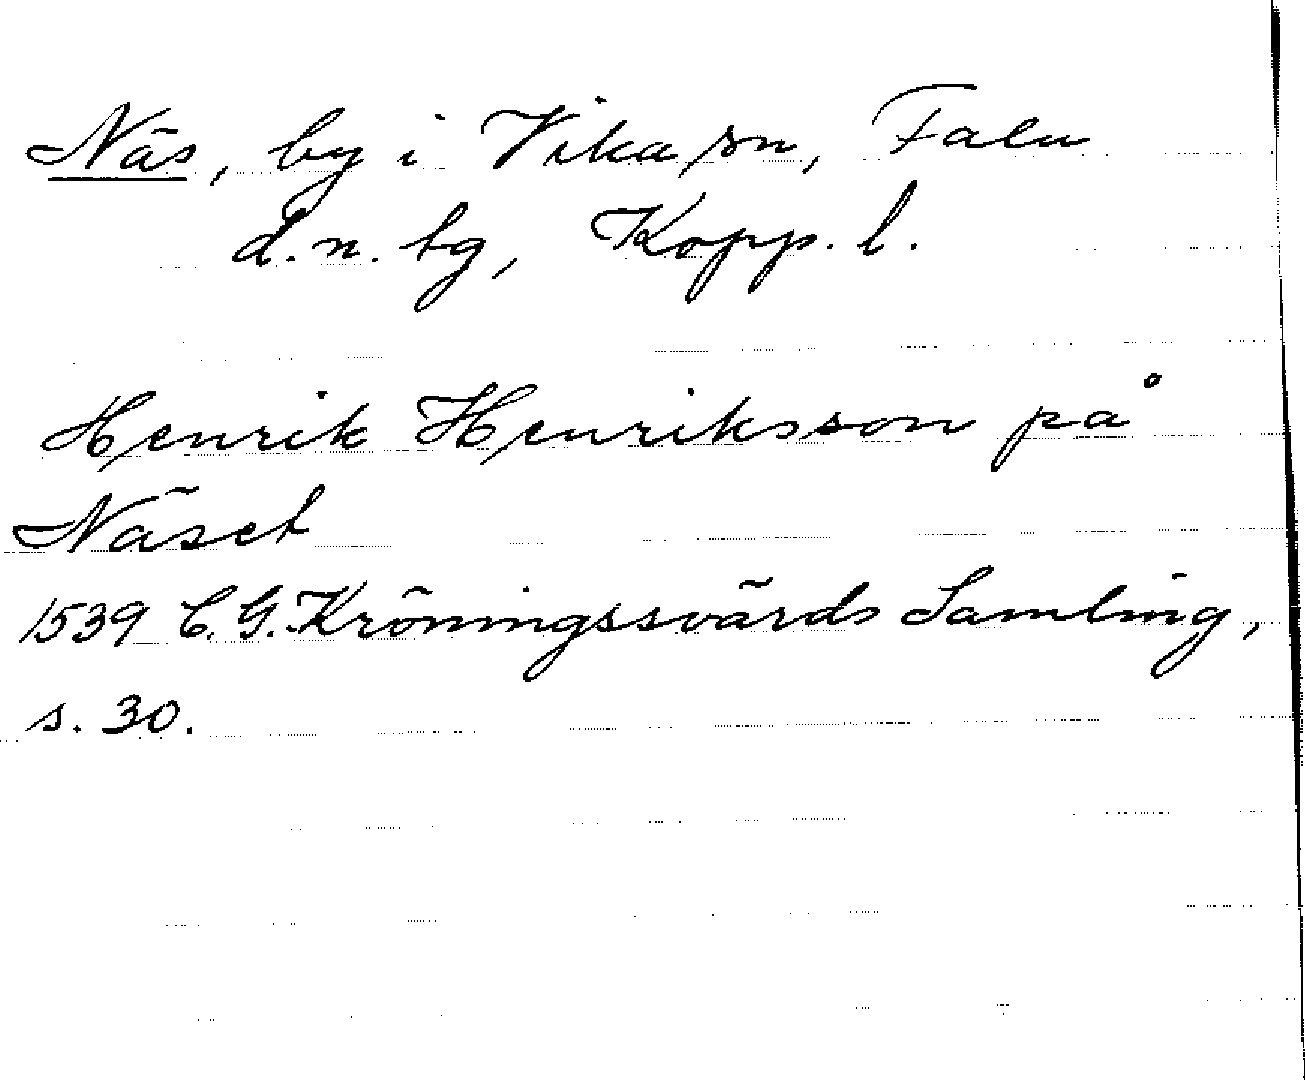 Näs, by i Vika sn, Falu
d.n. tg, Kopp. l.
Henrik Henriksson på
Näset
1539 C.G. Kröningssvärds Samling,
s. 30.